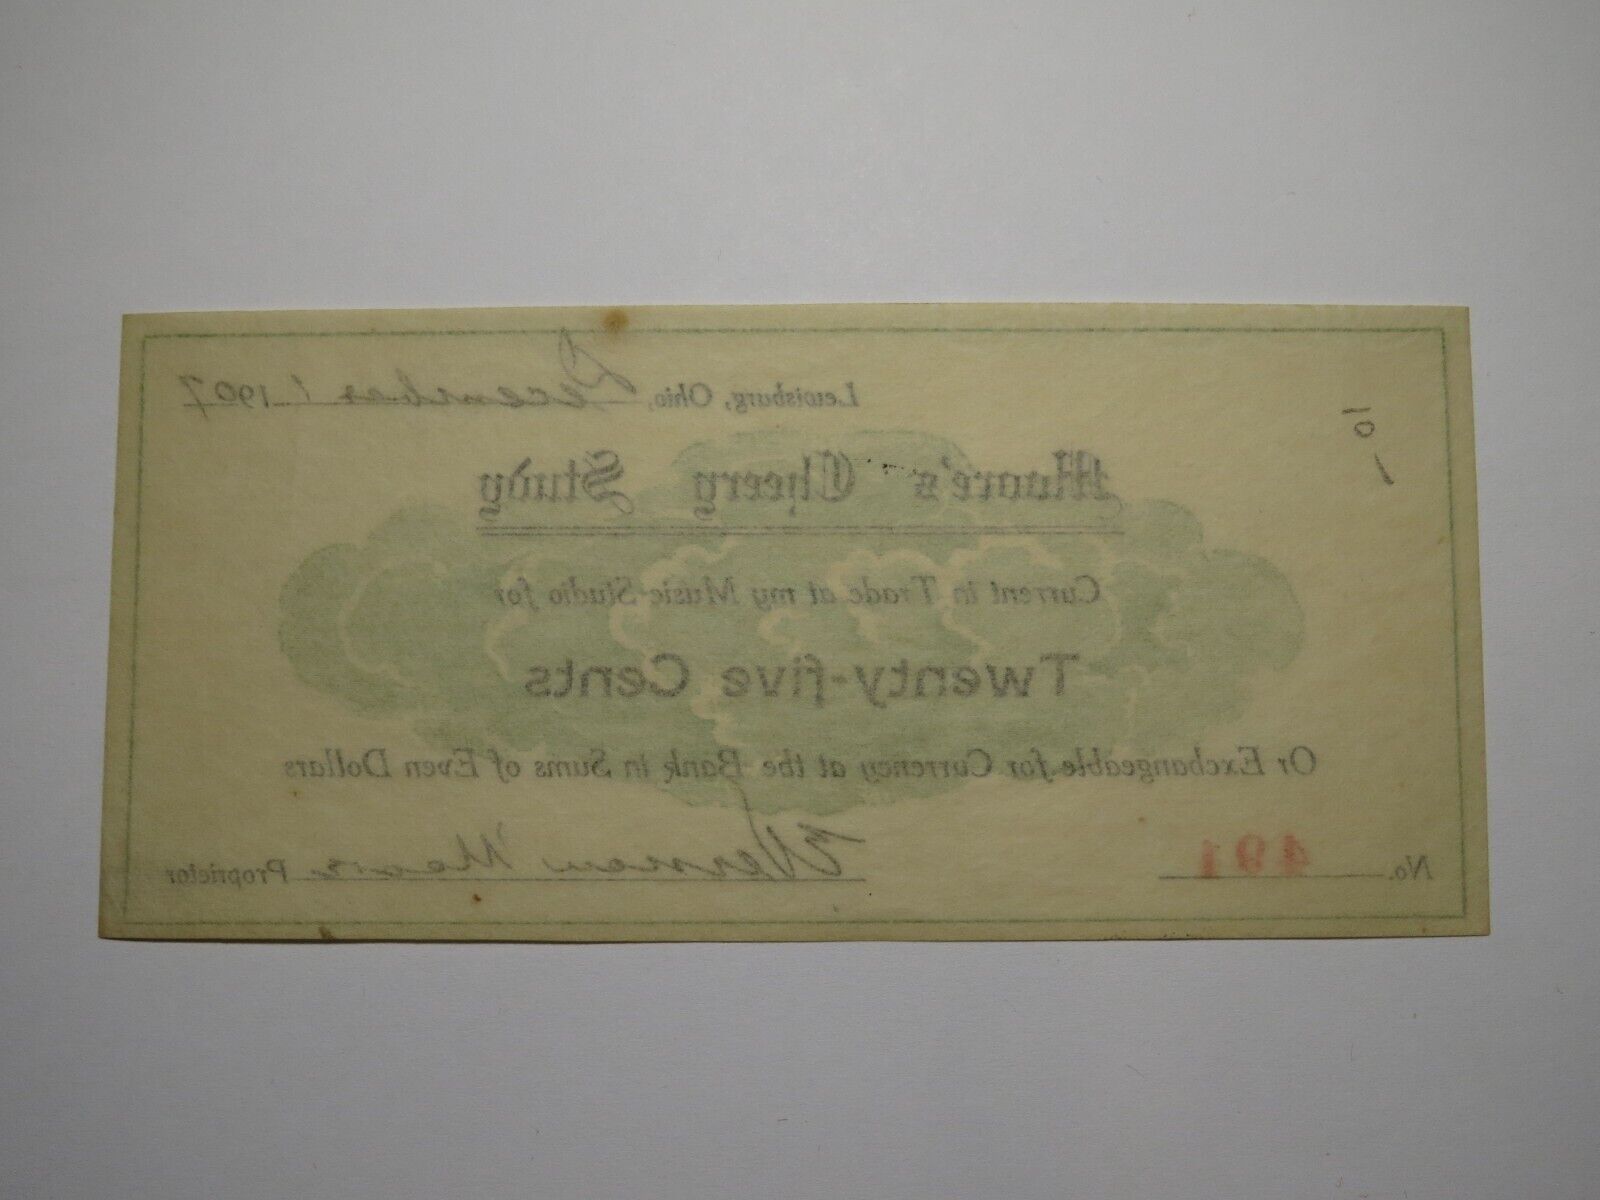 Lewisburg, Ohio, December 1, 1907
Moore's Cheery Study
Current in Trade at my Music Studio for
Twenty-five Cents
Or Exchangeable for Currency at the Bank in Sums of Even Dollars
No. 491
Moore Proprietor
10